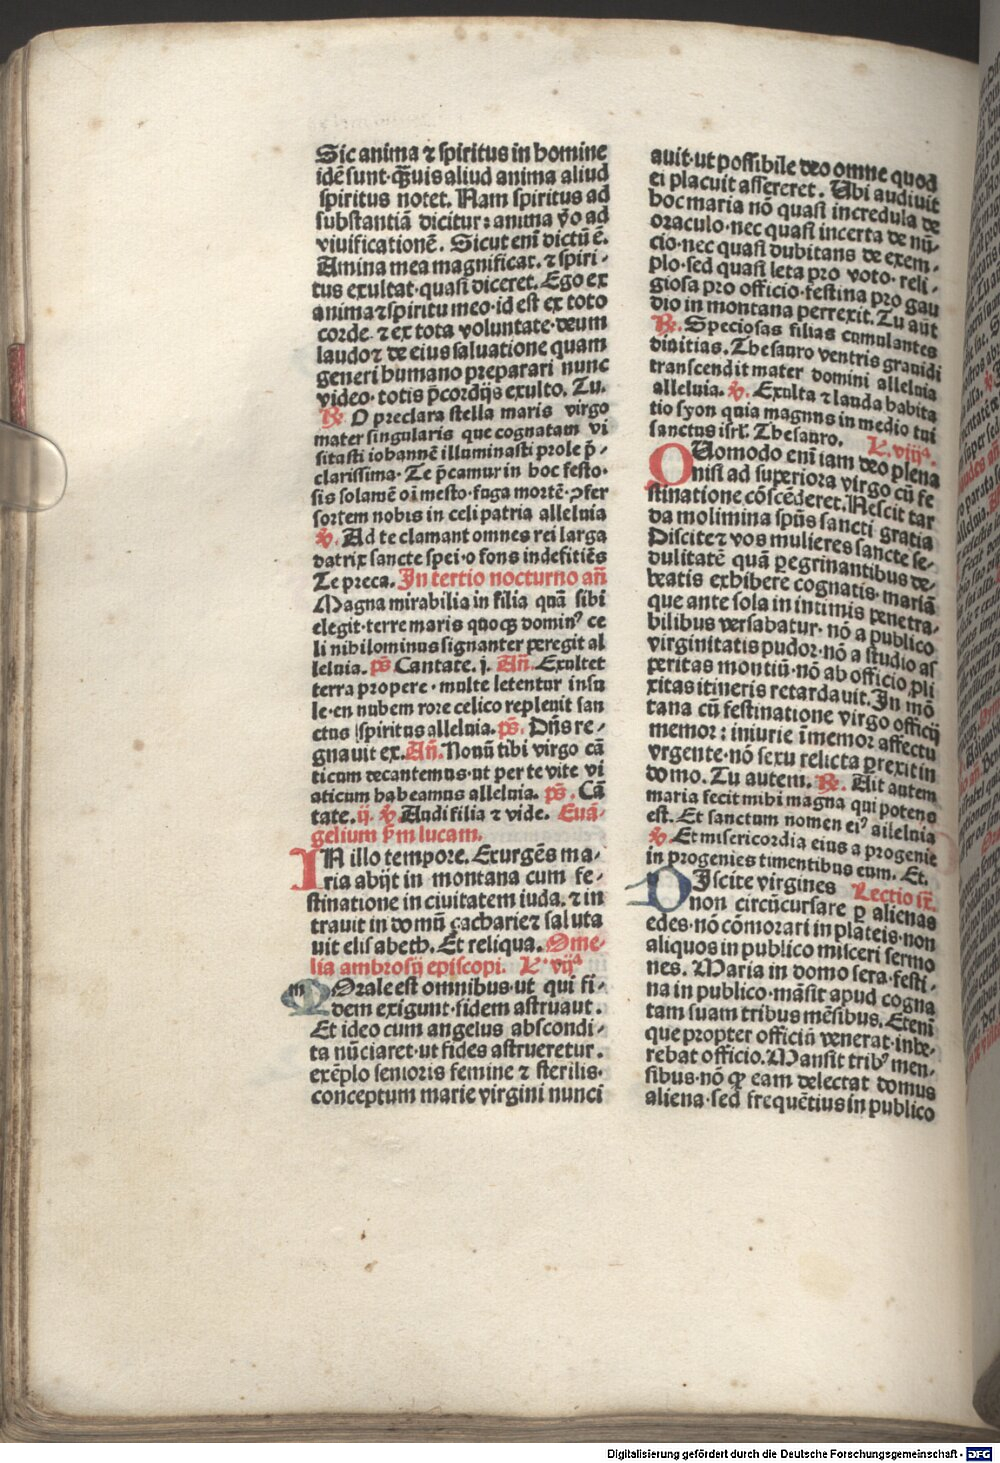 Sic anima ⁊ spiritus in homine
idē sunt· q̄uis aliud anima aliud
spiritus notet. Nam spiritus ad
substantiā dicitur: anima v̄o ad
viuificationē. Sicut eni dictū ē.
Amina mea magnificat. ⁊ spiri-
tus exultat· quasi diceret. Ego ex
anima ⁊ spiritu meo· id est ex toto
corde· ⁊ ex tota voluntate· deum
laudo⁊ de eius saluatione quam
generi humano preparari nunc
video· totis p̄cordijs exulto. Tu.
℟. O preclara stella maris virgo
mater singularis que cognatam vi
sitasti iohannē illuminasti prole p̄-
clarissima· Te p̄camur in hoc festo·
sis solamē oī mesto· fuga mortē· ꝯfer
sortem nobis in celi patria alleluia
℣. Ad te clamant omnes rei larga
datrix sancte spei· o fons indefitiēs
Te preca. In tertio nocturno añ
Magna mirabilia in filia quā sibi
elegit· terre maris quoqꝫ dominꝰ ce
li nihilominus signanter peregit al
leluia. ps̄ Cantate. j. Añ. Exultet
terra propere· multe letentur insu
le· en nubem rore celico repleuit san
ctus spiritus alleluia. ps̄. Dn̄s re-
gnauit ex. Añ. Nonū tibi virgo cā
ticum decantemus· ut per te vite vi
aticum habeamus alleluia. ps̄. Cā
tate. ij. ℣. Audi filia ⁊ vide. Euā-
gelium p̄m lucam.
IN illo tempore. Exurgēs ma-
ria abijt in montana cum fe-
stinatione in ciuitatem iuda. ⁊ in
trauit in domū çacharie⁊ saluta
uit elisabeth. Et reliqua. Ome-
lia ambrosij episcopi. L· vijᵃ
m MOrale est omnibus· ut qui fi-
dem exigunt· fidem astruaut.
Et ideo cum angelus abscondi-
ta nūciaret· ut fides astrueretur.
exēplo senioris femine ⁊ sterilis·
conceptum marie virgini nunci
auit· ut possibile deo omne quod
ei placuit assereret. Ubi audiuit
hoc maria nō quasi incredula de
oraculo· nec quasi incerta de nū-
cio· nec quasi dubitans de exem-
plo· sed quasi leta pro voto· reli-
giosa pro officio· festina pro gau
dio in montana perrexit. Tu aūt
℟. Speciosas filias cumulantes
diuitias. Thesauro ventris grauidi
transcendit mater domini alleluia
alleluia. ℣. Exulta ⁊ lauda habita
tio syon quia magnns in medio tui
sanctus isrl̄. Thesauro. L. viijᵃ.
QUomodo eni iam deo plena
nisi ad superiora virgo cū fe
stinatione cōscēderet. Nescit tar
da molimina spūs sancti gratia
Discite⁊ vos mulieres sancte se-
dulitatē quā peregrinantibus de-
beatis exhibere cognatis· mariā
que ante sola in intimis penetra-
bilibus versabatur· nō a publico
virginitatis pudor· nō a studio as
peritas montiū· nō ab officio pli
xitas itineris retardauit. In mō
tana cū festinatione virgo officij
memor: iniurie īmemor affectu
vrgente· nō sexu relicta perexit in
domo. Tu autem. ℟. Ait autem
maria fecit mihi magna qui potens
est. Et sanctum nomen eiꝰ alleluia
℣. Et misericordia eius a progenie
in progenies timentibus eum. Et.
DIscite virgines Lectio ix.
non circūcursare per alienas
edes· nō cōmorari in plateis· non
aliquos in publico misceri sermo
nes. Maria in domo sera· festi-
na in publico· māsit apud cogna
tam suam tribus mēsibus. Eteni
que propter officiū venerat· inhe-
rebat officio. Mansit tribꝰ men-
sibus· nō quod eam delectat domus
aliena· sed frequētius in publico
Digitalisierung gefördert durch die Deutsche Forschungsgemeinschaft - DFG